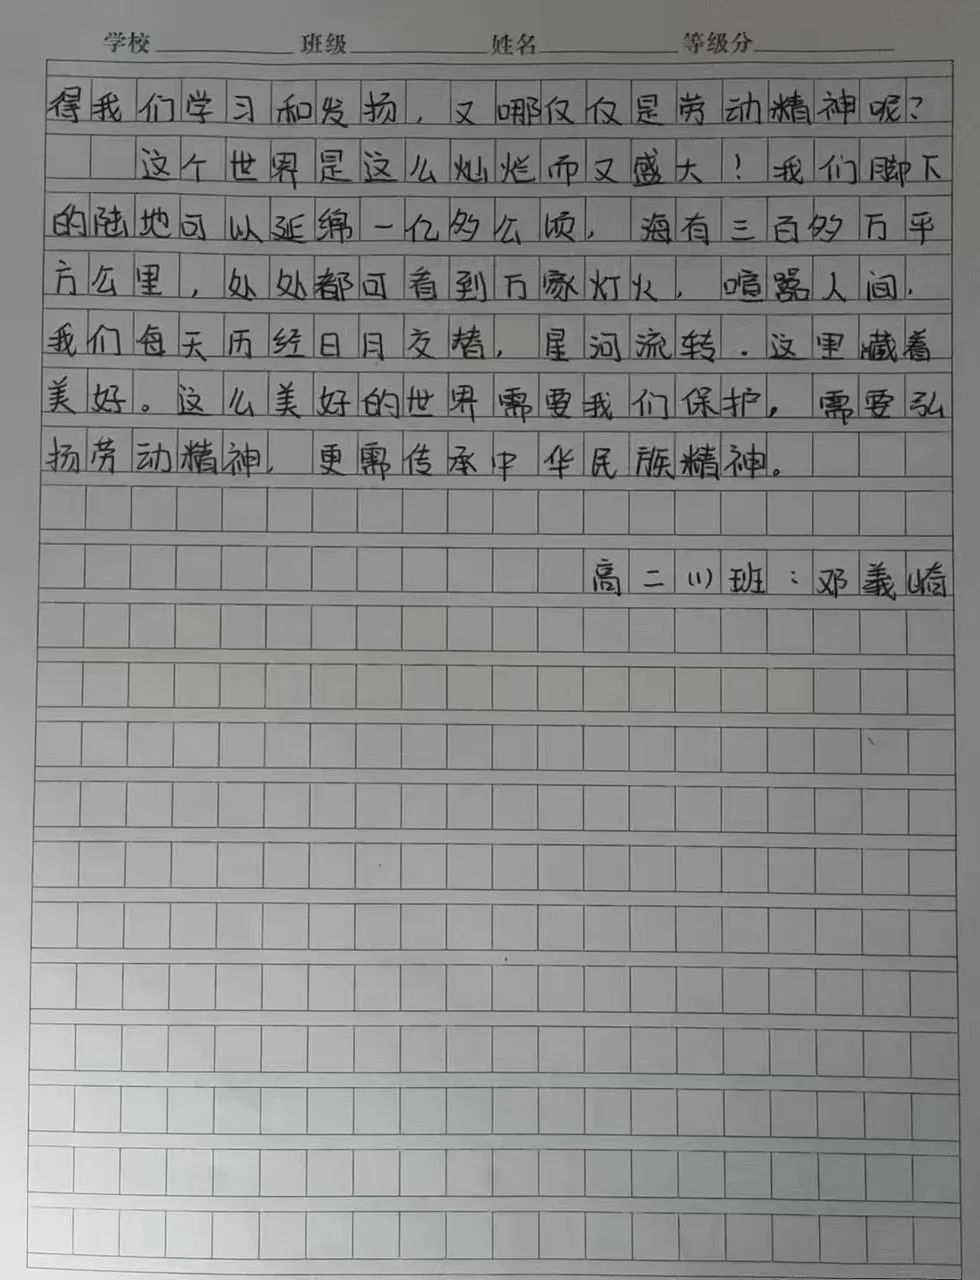 学校 班级 姓名 等级分
得我们学习和发扬，又哪仅仅是劳动精神呢？
这个世界是这么灿烂而又盛大！我们脚下
的陆地可以延绵一亿多公顷，海有三百多万平
方公里，处处都可看到万家灯火，喧嚣人间，
我们每天历经日月交替，星河流转．这里藏着
美好。这么美好的世界需要我们保护，需要弘
扬劳动精神，更需传承中华民族精神。
高二(1)班：邓義崎